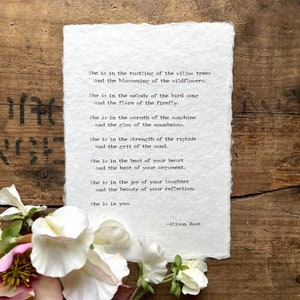 She is in the rustling of the willow trees
and the blossoming of the wildflowers.
She is in the melody of the bird song
and the flare of the firefly.
She is in the warmth of the sunshine
and the glow of the moonbeams.
She is in the strength of the riptide
and the grit of the sand.
She is in the beat of your heart
and the beat of your argument.
She is in the joy of your laughter
and the beauty of your reflection.
She is in you.